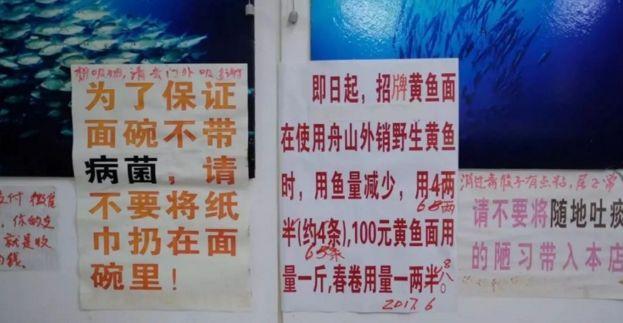 想吸烟，请去门外吸 谢谢
为了保证
面碗不带
病菌，请
不要将纸
巾扔在面
碗里！
即日起，招牌黄鱼面
在使用舟山外销野生黄鱼
时，用鱼量减少，用4两
68两
半(约4条)，100元黄鱼面用
65条
量一斤，春卷用量一两半。
2017.6
请不要将随地吐痰
的陋习带入本店
，你的
就是收
钱。